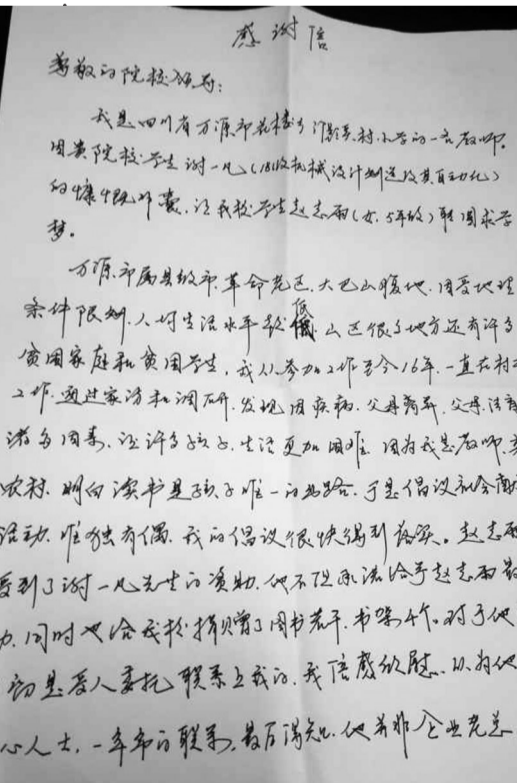 感谢信
尊敬的院校领导:
我是四川省万源市花楼乡 村小学的一名教师。
因贵院校学生谢一凡(18级机械设计制造及其自动化)
的慷慨解囊,让我校学生赵志雨(女.5年级)取圆求学
梦。
万源市属县级市.革命老区.大巴山腹地.因受地理
条件限制.人均生活水平较低.山区很多地方还有许多
贫困家庭和贫困学生,我从参加工作至今16年.一直在村
工作.通过家访和调研.发现因疾病.父母离异.父母
诸多因素.让许多孩子.生活更加困难.因为我是教师.
农村.明白读书是孩子唯一的出路.于是倡议社会
活动.唯独有偶.我的倡议很快得到落实。赵志雨
受到了谢一凡先生的资助.他不但承诺给予赵志雨
力.同时也给我校捐赠了图书若干.书架4个。对于他
初是受人委托联系上我的.我倍感欣慰.以为他
心人士.一年来的联系,最后得知.他并非企业老总